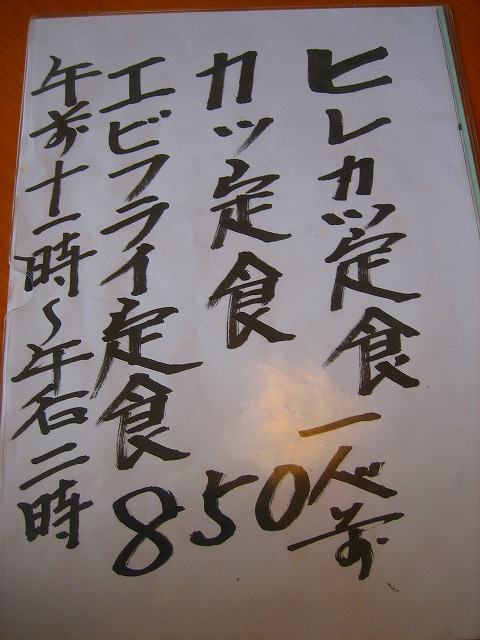 ヒレカツ定食一人前
カツ定食
エビフライ定食
850
午前十一時〜午后二時